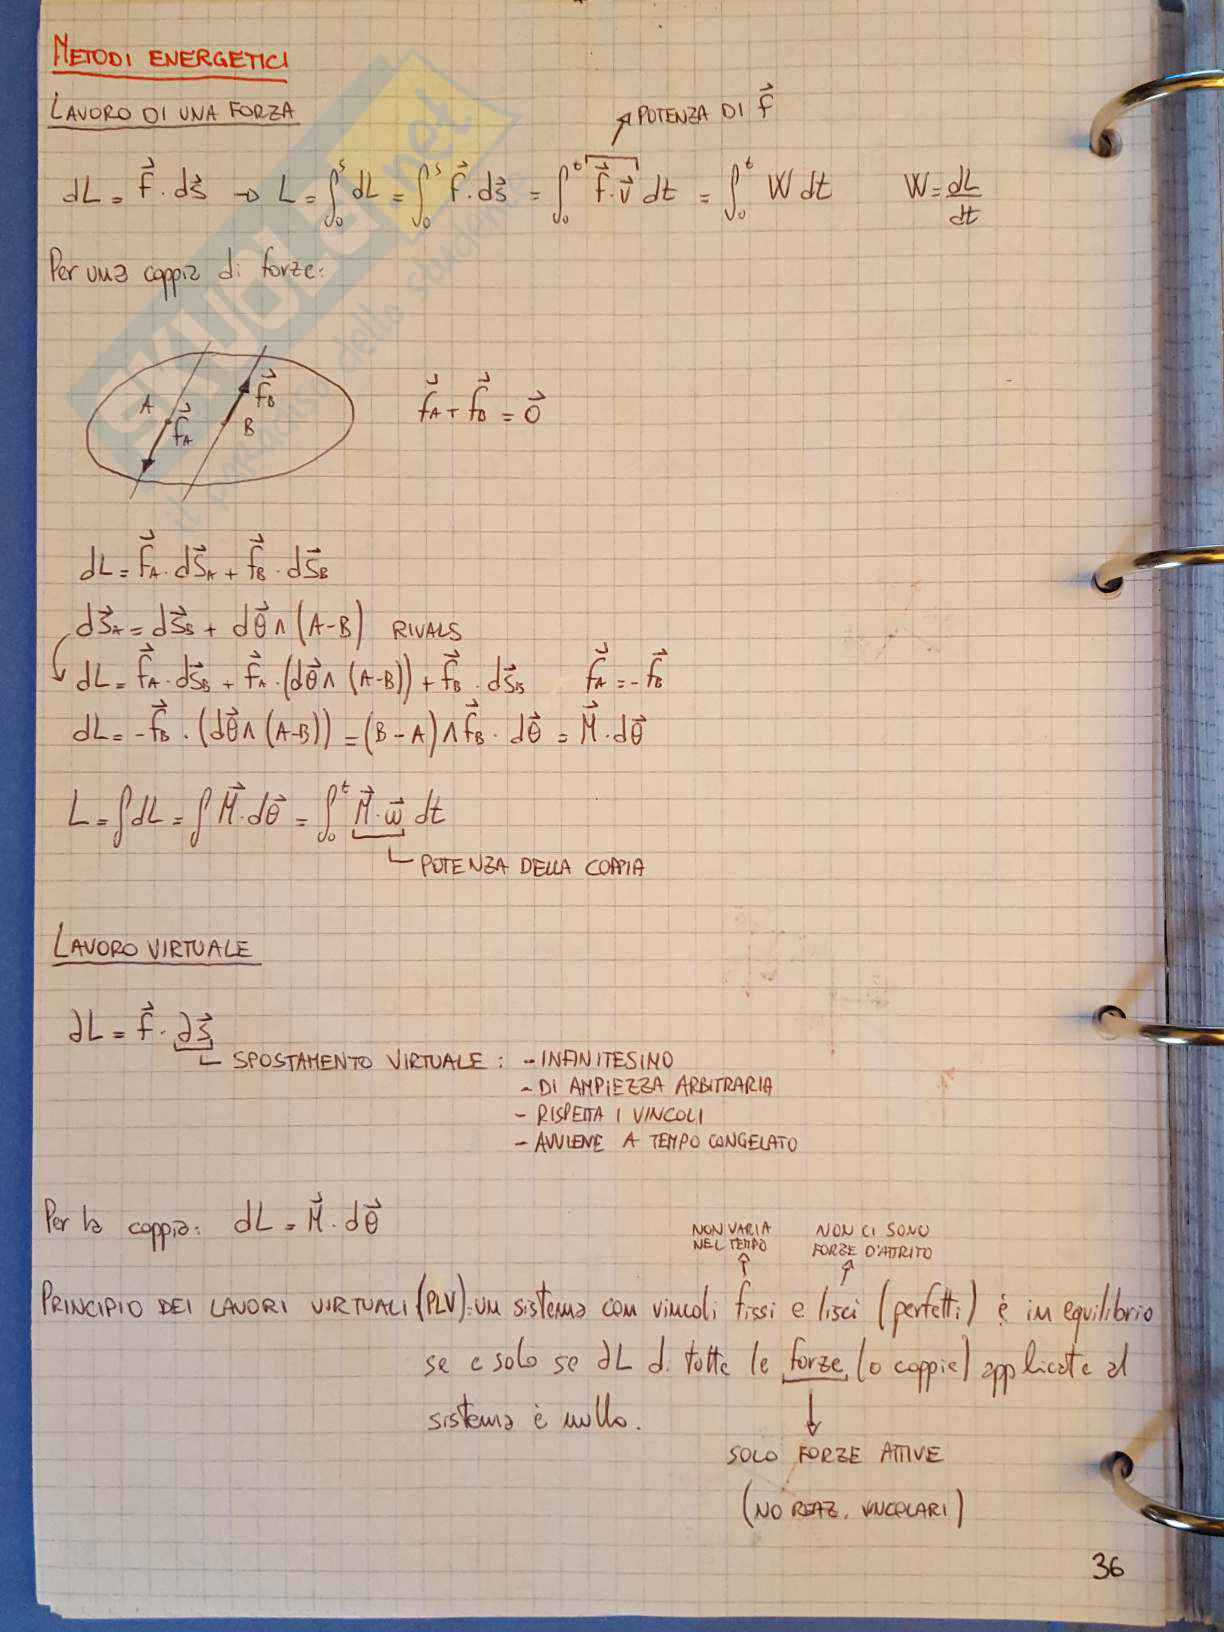 METODI ENERGETICI
LAVORO DI UNA FORZA
POTENZA DI f⃗
dL = f⃗ · ds⃗ → L = ∫₀ˢ dL = ∫₀ˢ f⃗ · ds⃗ = ∫₀ᵗ f⃗ · v⃗ dt = ∫₀ᵗ W dt W = dL/dt
Per una coppia di forze:
A f⃗A f⃗B B
f⃗A + f⃗B = 0⃗
dL = f⃗A · dS⃗A + f⃗B · dS⃗B
ds⃗A = ds⃗B + dθ⃗ ∧ (A-B) RIVALS
dL = f⃗A · ds⃗B + f⃗A · (dθ⃗ ∧ (A-B)) + f⃗B · ds⃗B f⃗A = -f⃗B
dL = -f⃗B · (dθ⃗ ∧ (A-B)) = (B-A) ∧ f⃗B · dθ⃗ = M⃗ · dθ⃗
L = ∫dL = ∫ M⃗ · dθ⃗ = ∫₀ᵗ M⃗ · ω⃗ dt
POTENZA DELLA COPPIA
LAVORO VIRTUALE
∂L = f⃗ · ∂s⃗
SPOSTAMENTO VIRTUALE: - INFINITESIMO
- DI AMPIEZZA ARBITRARIA
- RISPETTA I VINCOLI
- AVVIENE A TEMPO CONGELATO
Per la coppia: dL = M⃗ · dθ⃗
NON VARIA NEL TEMPO
NON CI SONO FORZE D'ATTRITO
PRINCIPIO DEI LAVORI VIRTUALI (PLV): un sistema con vincoli fissi e lisci (perfetti) è in equilibrio
se e solo se ∂L di tutte le forze (o coppie) applicate al
sistema è nullo.
SOLO FORZE ATTIVE
(NO REAZ. VINCOLARI)
36
SKUOLA.net
il paradiso dello studente